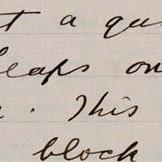 t a qu
leaps on
. This
block